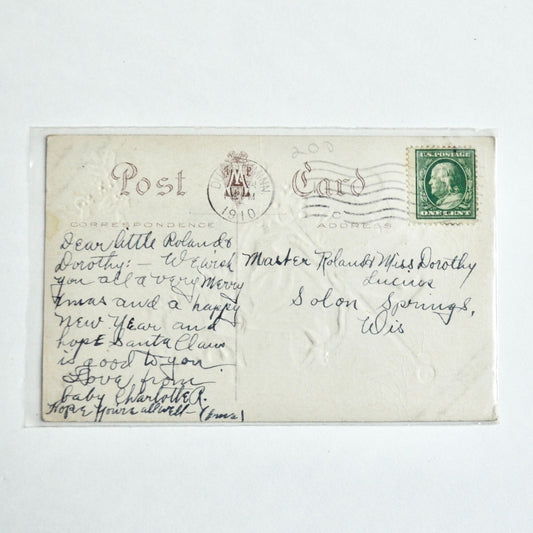 200
Post Card
1910
U.S. POSTAGE
ONE CENT
CORRESPONDENCE
ADDRESS
Dear little Roland &
Dorothy: – We wish
you all a very Merry
Xmas and a happy
New Year and
hope Santa Claus
is good to you.
Love from
baby Charlotte R.
Hope yours all well –
Master Roland & Miss Dorothy
Solon Springs,
Wis